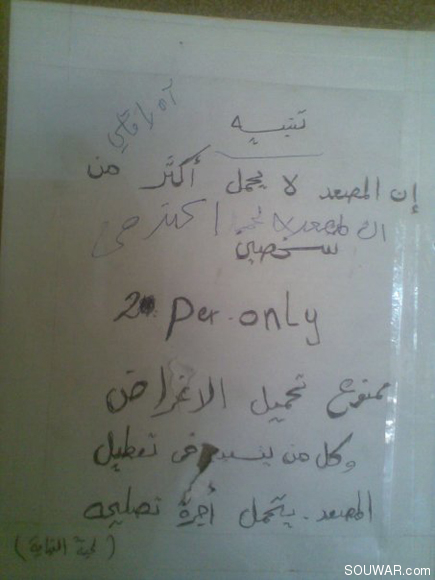 تنبيه
آه يا قلبي
إن المصعد لا يحمل أكثر من
ال المصعد لا يحمل اكثر من
شخصين
2 per.only
ممنوع تحميل الاغراض
وكل من يتسبب في تعطيل
المصعد. يتحمل أجرة تصليحه
(لجنة البناية)
SOUWAR.com